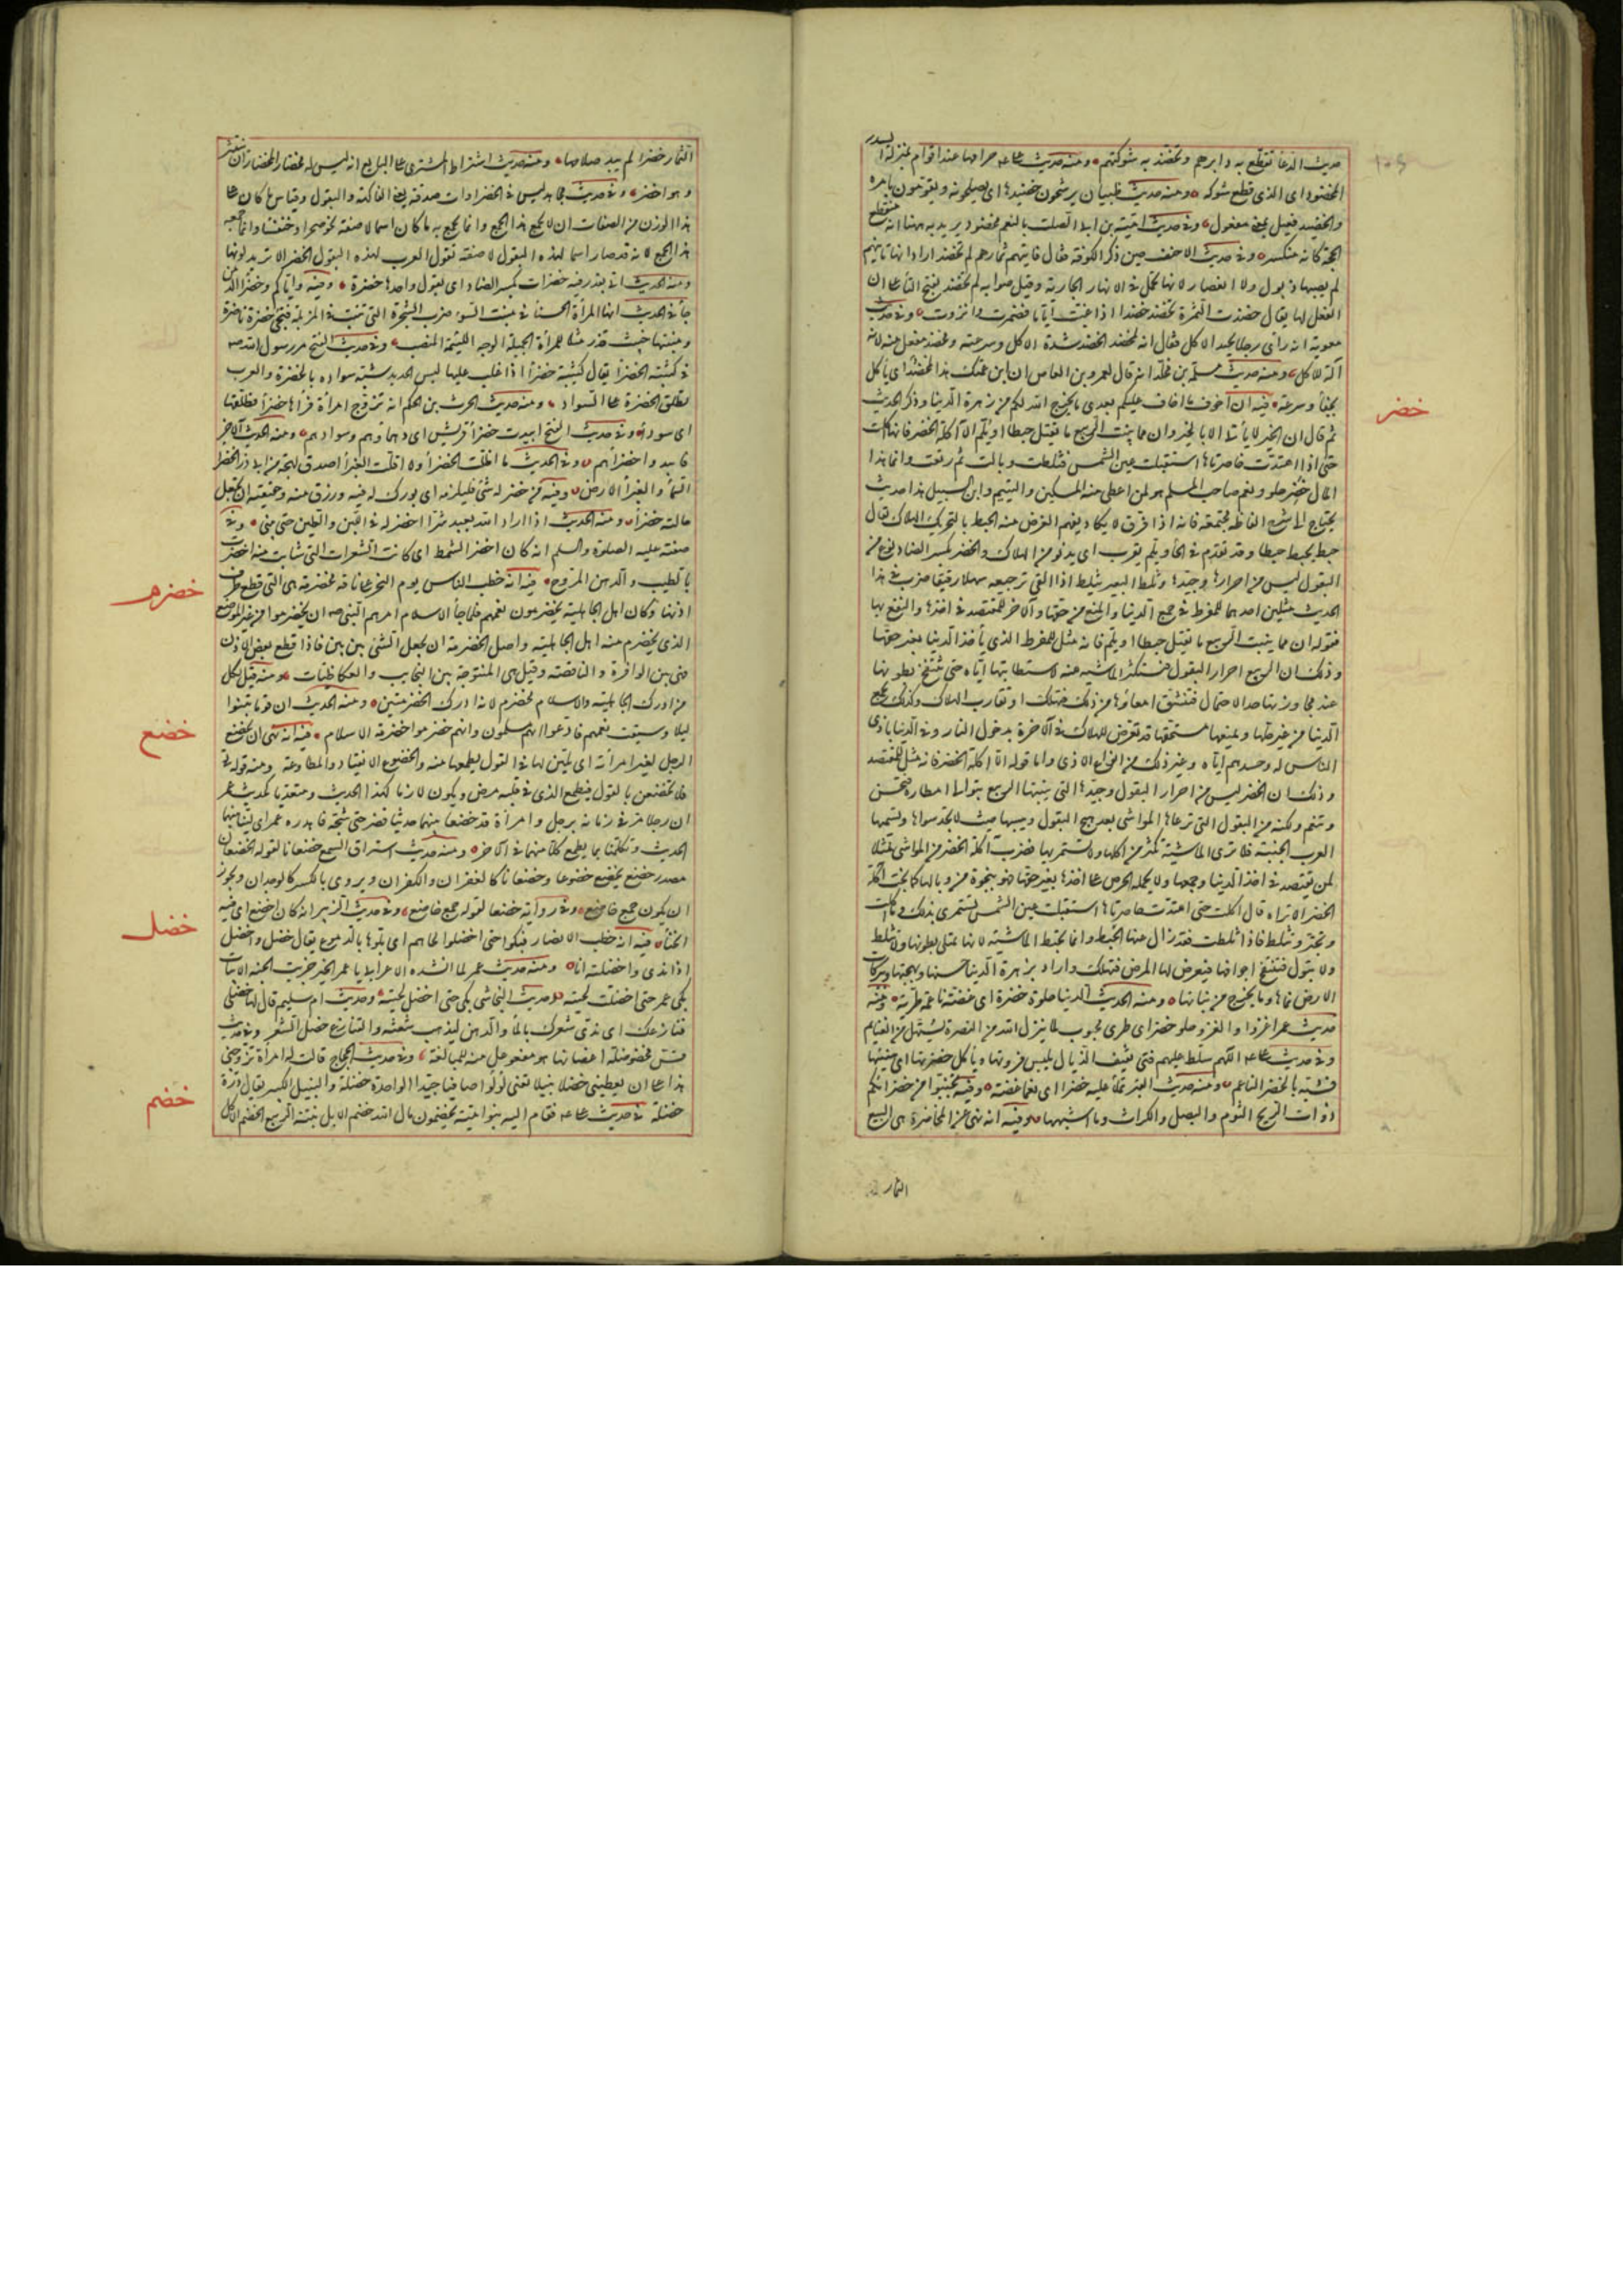 حديث الدعا تقطع به دابرهم وتخضد به شوكتهم ومنه حديث علي حرامها عند اقوام بمنزلة السدر
المخضود اى الذى قطع شوكه ومنه حديث ظبيان يرشحون خضيدها اى يصلحونه ويقومون بامره
والخضيد فعيل بمعنى مفعول وفى حديث امية بن ابى الصلت بالنعم محفود يريد به ههنا انه منقطع
الحجة كانه منكسر وفى حديث الاحنف حين ذكر الكوفة فقال تاتيهم ثمارهم لم تخضد اراد انها تاتيهم
لم يصبها ذبول ولا انعصار لانها تحمل فى الانهار الجارية وقيل صوابه لم تخضد بفتح التاء على ان
الفعل لها يقال خضدت الثمرة تخضد خضدا اذا غبت اياما فضمرت وانزوت وفى حديث
معوية انه راى رجلا يجيد الاكل فقال انه لمخضد الخضد شدة الاكل وسرعته ومخضد مفعل منه كانه
آلة للاكل ومنه حديث مسلمة بن مخلد انه قال لعمرو بن العاص ان ابن عمك هذا لمخضد اى ياكل
بجفاء وسرعة فيه ان اخوف ما اخاف عليكم بعدى ما يخرج الله لكم من زهرة الدنيا وذكر الحديث
خضر
ثم قال ان الخير لا يأتى الا بالخير وان مما ينبت الربيع ما يقتل حبطا او يلم الا آكلة الخضر فانها اكلت
حتى اذا امتدت خاصرتاها استقبلت عين الشمس فثلطت وبالت ثم رتعت وانما هذا
المال خضر حلو ونعم صاحب المسلم هو لمن اعطى منه المسكين واليتيم وابن السبيل هذا حديث
يحتاج الى شرح الفاظه مجتمعة فانه اذا فرق لا يكاد يفهم الغرض منه الحبط بالتحريك الهلاك يقال
حبط يحبط حبطا وقد تقدم فى الحاء ويلم يقرب اى يدنو من الهلاك والخضر بكسر الضاد نوع من
البقول ليس من احرارها وجيدها وثلط البعير يثلط اذا القى رجيعه سهلا رقيقا ضرب فى هذا
الحديث مثلين احدهما للمفرط فى جمع الدنيا والمنع من حقها والاخر للمقتصد فى اخذها والنفع بها
فقوله ان مما ينبت الربيع ما يقتل حبطا او يلم فانه مثل للمفرط الذى يأخذ الدنيا بغير حقها
وذلك ان الربيع احرار البقول فتستكثر الماشية منه لاستطابتها اياه حتى تنتفخ بطونها
عند مجاوزتها حد الاحتمال فتنشق امعاؤها من ذلك فتهلك او تقارب الهلاك وكذلك يجمع
الدنيا من غير حلها ويمنعها مستحقها قد تعرض للهلاك فى الاخرة بدخول النار وفى الدنيا باذى
الناس له وحسدهم اياه وغير ذلك من انواع الاذى واما قوله الا آكلة الخضر فانه مثل للمقتصد
وذلك ان الخضر ليس من احرار البقول وجيدها التى ينبتها الربيع بتوالى امطاره فتحسن
وتنعم ولكنه من البقول التى ترعاها المواشى بعد هيج البقول ويبسها حيث لا تجد سواها وتسميها
العرب الجنبة فلا ترى الماشية تكثر من اكلها ولا تستمريها فضرب آكلة الخضر من المواشى مثلا
لمن يقتصد فى اخذ الدنيا وجمعها ولا يحمله الحرص على اخذها بغير حقها فهو بنجوة من وبالها كما نجت آكلة
الخضر الا تراه قال اكلت حتى امتدت خاصرتاها استقبلت عين الشمس تستمرى بذلك ما اكلت
وتجتر وتثلط فاذا ثلطت فقد زال عنها الحبط وانما تحبط الماشية لانها تمتلى بطونها ولا تثلط
ولا تبول فتنتفخ اجوافها فيعرض لها المرض فتهلك واراد بزهرة الدنيا حسنها وبهجتها وببركات
الارض نماها وما يخرج من نباتها ومنه الحديث الدنيا حلوة خضرة اى غضة ناعمة طرية ومنه
حديث عمر اغزوا والغزو حلو خضر اى طرى محبوب لما ينزل الله من النصرة ويسهل من الغنايم
وفى حديث علي اللهم سلط عليهم فتى ثقيف الذيال يلبس فروتها ويأكل خضرتها اى هنيئها
فشبه بالخضر الناعم ومنه حديث القبر يملأ عليه خضرا اى نعما غضة وفيه تجنبوا من خضرائكم
ذوات الريح الثوم والبصل والكراث وما اشبهها وفيه انه نهى عن المخاضرة هى البيع
الثمار
الثمار خضرا لم يبد صلاحها ومنه حديث اشتراط المشترى على البايع انه ليس له مخضار المخضار ان ينتثر
وهو اخضر وفى حديث مجاهد ليس فى الخضراوات صدقة يعنى الفاكهة والبقول وقياس ما كان على
هذا الوزن من الصفات ان لا يجمع هذا الجمع وانما يجمع به ما كان اسما لا صفة نحو صحرا وخنفسا وانما جمعه
هذا الجمع لانه قد صار اسما لهذه البقول لا صفة تقول العرب لهذه البقول الخضر لا تريد لونها
ومنه الحديث اتى بقدر فيه خضرات بكسر الضاد اى بقول واحدها خضرة وفيه واياكم وخضراء الدمن
جاء فى الحديث انها المرأة الحسناء فى منبت السوء ضرب الشجرة التى تنبت فى المزبلة فتجئ خضرة ناضرة
ومنبتها خبيث قذر مثلا للمرأة الجميلة الوجه اللئيمة المنصب وفى حديث الفتح مر رسول الله صم
فى كتيبته الخضراء يقال كتيبة خضراء اذا غلب عليها لبس الحديد شبه سواده بالخضرة والعرب
تطلق الخضرة على السواد ومنه حديث الحرث بن الحكم انه تزوج امرأة فرآها خضراء فطلقها
اى سوداء وفى حديث الفتح ابيدت خضراء قريش اى دهماؤهم وسوادهم ومنه الحديث الاخر
فابيدوا خضراءهم وفى الحديث ما اظلت الخضراء ولا اقلت الغبراء اصدق لهجة من ابى ذر الخضراء
السماء والغبراء الارض وفيه من خضر له شئ فليلزمه اى بورك له فيه ورزق منه وحقيقته ان تجعل
حالته خضراء ومنه الحديث اذا اراد الله بعبد شرا اخضر له فى اللبن والطين حتى يبنى وفى
صفته عليه الصلوة والسلم انه كان اخضر الشمط اى كانت الشعرات التى شابت منه اخضرت
بالطيب والدهن المروح فيه انه خطب الناس يوم النحر على ناقة مخضرمة هى التى قطع طرف
خضرم
اذنها وكان اهل الجاهلية يخضرمون نعمهم فلما جاء الاسلام امرهم النبى صم ان يخضرموا من غير الموضع
الذى يخضرم منه اهل الجاهلية واصل الخضرمة ان يجعل الشئ بين بين فاذا قطع بعض الاذن
فهى بين الوافرة والناقصة وقيل هى المنتوجة بين النجايب والعكاظيات ومنه قيل لكل
من ادرك الجاهلية والاسلام مخضرم لانه ادرك الخضرمتين ومنه الحديث ان قوما بيتوا
ليلا وسيقت نعمهم فادعوا انهم مسلمون وانهم خضرموا خضرمة الاسلام فيه انه نهى ان يخضع
خضع
الرجل لغير امرأته اى يلين لها فى القول يطمعها منه والخضوع الانقياد والمطاوعة ومنه قوله تع
فلا تخضعن بالقول فيطمع الذى فى قلبه مرض ويكون لازما كهذا الحديث ومتعديا كحديث عمر
ان رجلا مر فى زمانه برجل وامرأة قد خضعا بينهما حديثا فضربه حتى شجه فاهدره عمر اى لينا بينهما
الحديث وتكلما بما يطمع كلا منهما فى الاخر ومنه حديث استراق السمع خضعانا لقوله الخضعان
مصدر خضع يخضع خضوعا وخضعانا كالغفران والكفران ويروى بالكسر كالوجدان ويجوز
ان يكون جمع خاضع وفى رواية خضعا لقوله جمع خاضع وفى حديث الزبير انه كان اخضع اى فيه
انحناء فيه انه خطب الانصار فبكوا حتى اخضلوا لحاهم اى بلوها بالدموع يقال خضل واخضل
خضل
اذا ندى واخضلته انا ومنه حديث عمر لما انشده الاعرابى يا عمر الخير جزيت الجنة الابيات
بكى عمر حتى اخضلت لحيته وحديث النجاشى بكى حتى اخضل لحيته وحديث ام سليم قال لها خضلى
قنازعك اى ندى شعرك بالماء والدهن ليذهب شعثه والقنازع خصل الشعر وفى حديث
قس مخضوضلة اغصانها هو مفعوعلة منه للمبالغة وفى حديث الحجاج قالت له امرأة تزوجنى
هذا على ان يعطينى خضلا نبيلا تعنى لؤلؤا صافيا جيدا الواحدة خضلة والنبيل الكبير يقال درة
خضلة فى حديث علي فقام اليه بنو امية يخضمون مال الله خضم الابل نبتة الربيع الخضم الاكل
خضم